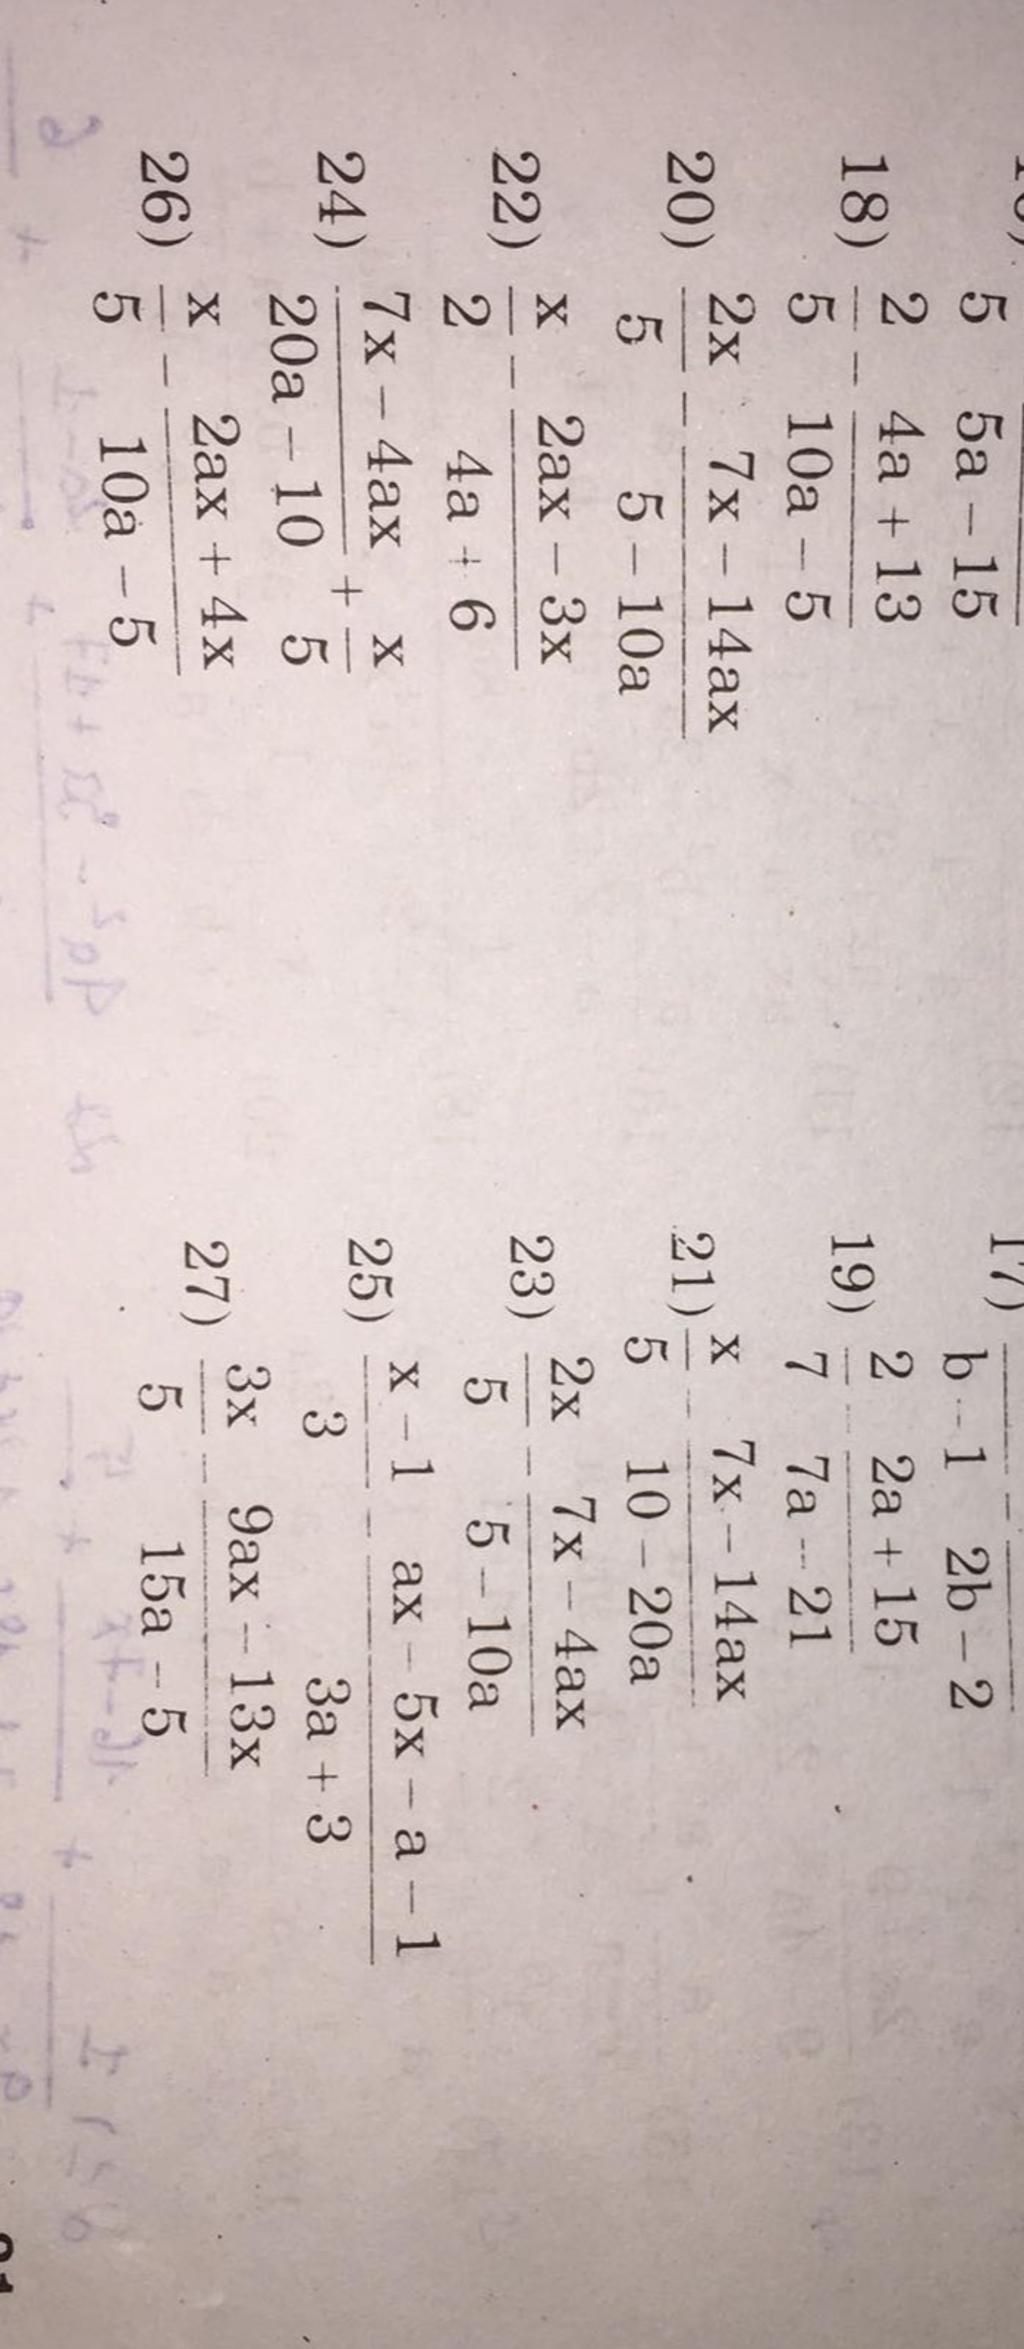 5 5a – 15
b – 1 2b – 2
18) 2/5 – (4a + 13)/(10a – 5)
19) 2/7 – (2a + 15)/(7a – 21)
20) 2x/5 – (7x – 14ax)/(5 – 10a)
21) x/5 – (7x – 14ax)/(10 – 20a)
22) x/2 – (2ax – 3x)/(4a + 6)
23) 2x/5 – (7x – 4ax)/(5 – 10a)
24) (7x – 4ax)/(20a – 10) + x/5
25) (x – 1)/3 – (ax – 5x – a – 1)/(3a + 3)
26) x/5 – (2ax + 4x)/(10a – 5)
27) 3x/5 – (9ax – 13x)/(15a – 5)